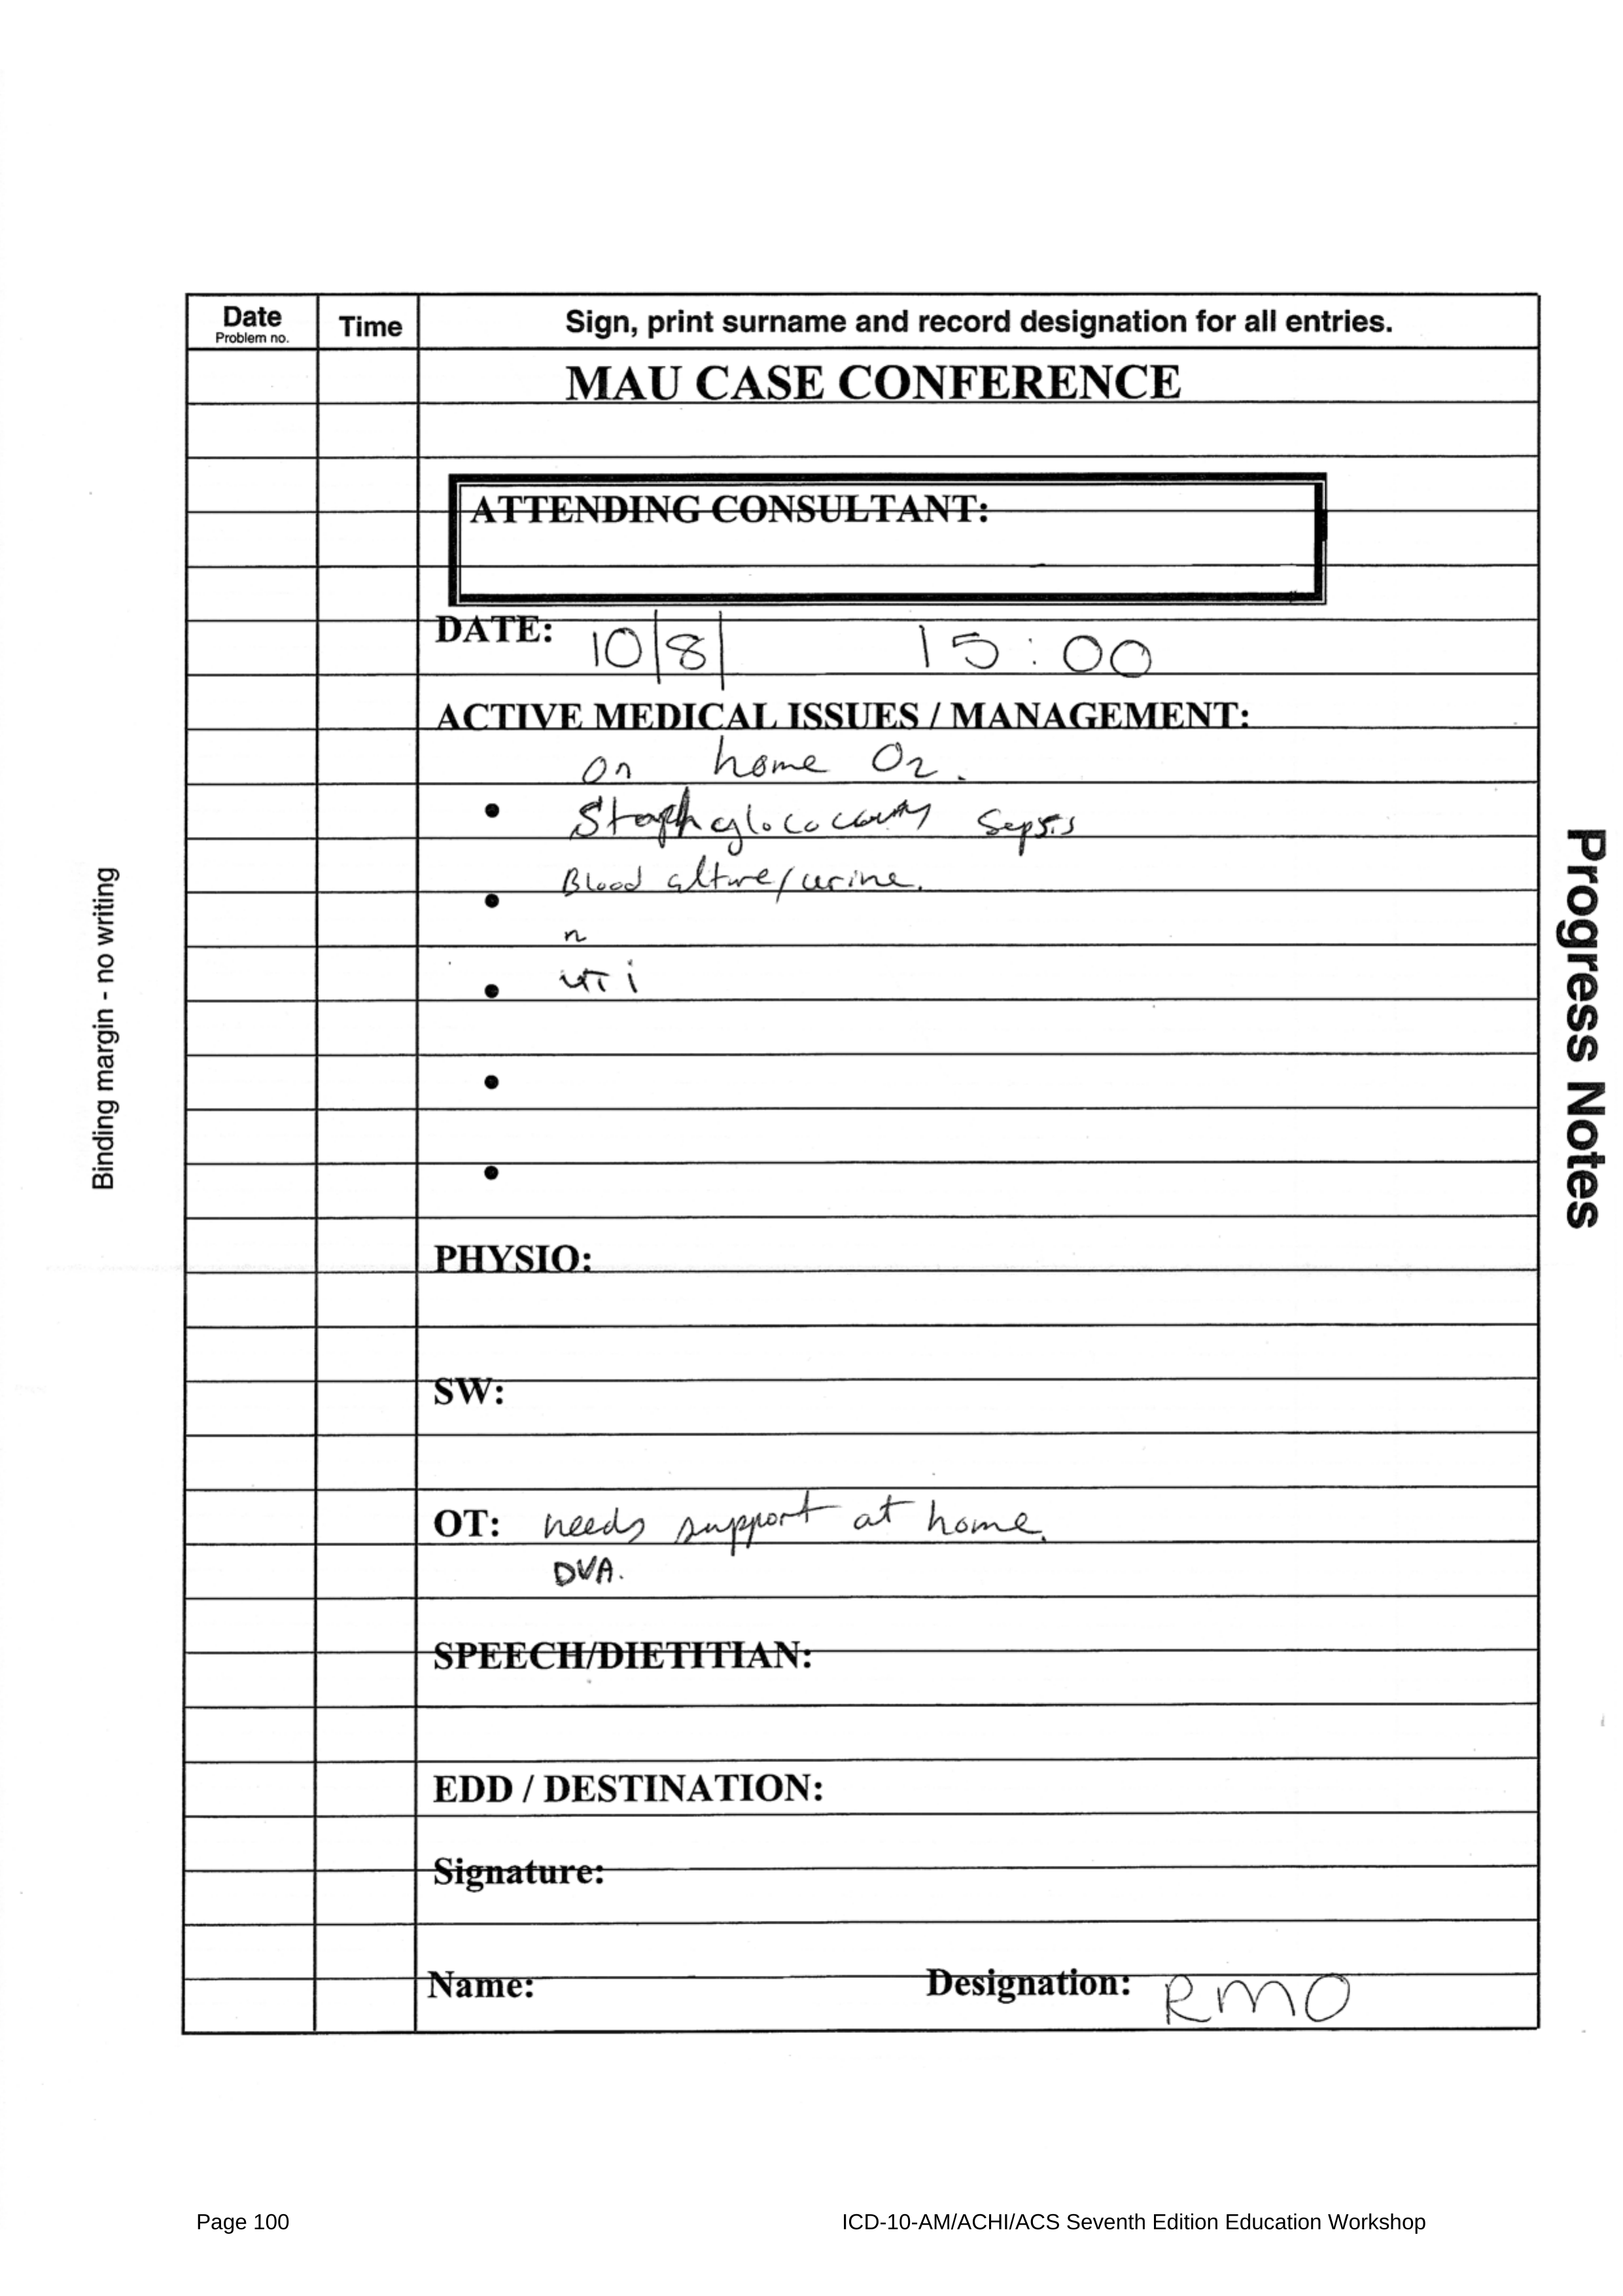 Date
Problem no.
Time
Sign, print surname and record designation for all entries.
MAU CASE CONFERENCE
ATTENDING CONSULTANT:
DATE: 10/8/ 15:00
ACTIVE MEDICAL ISSUES / MANAGEMENT:
On home O2.
• Sepsis
• Blood culture/urine.
n
• UTi
•
•
PHYSIO:
SW:
OT: needs support at home.
DVA.
SPEECH/DIETITIAN:
EDD / DESTINATION:
Signature:
Name: Designation: RMO
Binding margin - no writing
Progress Notes
Page 100 ICD-10-AM/ACHI/ACS Seventh Edition Education Workshop